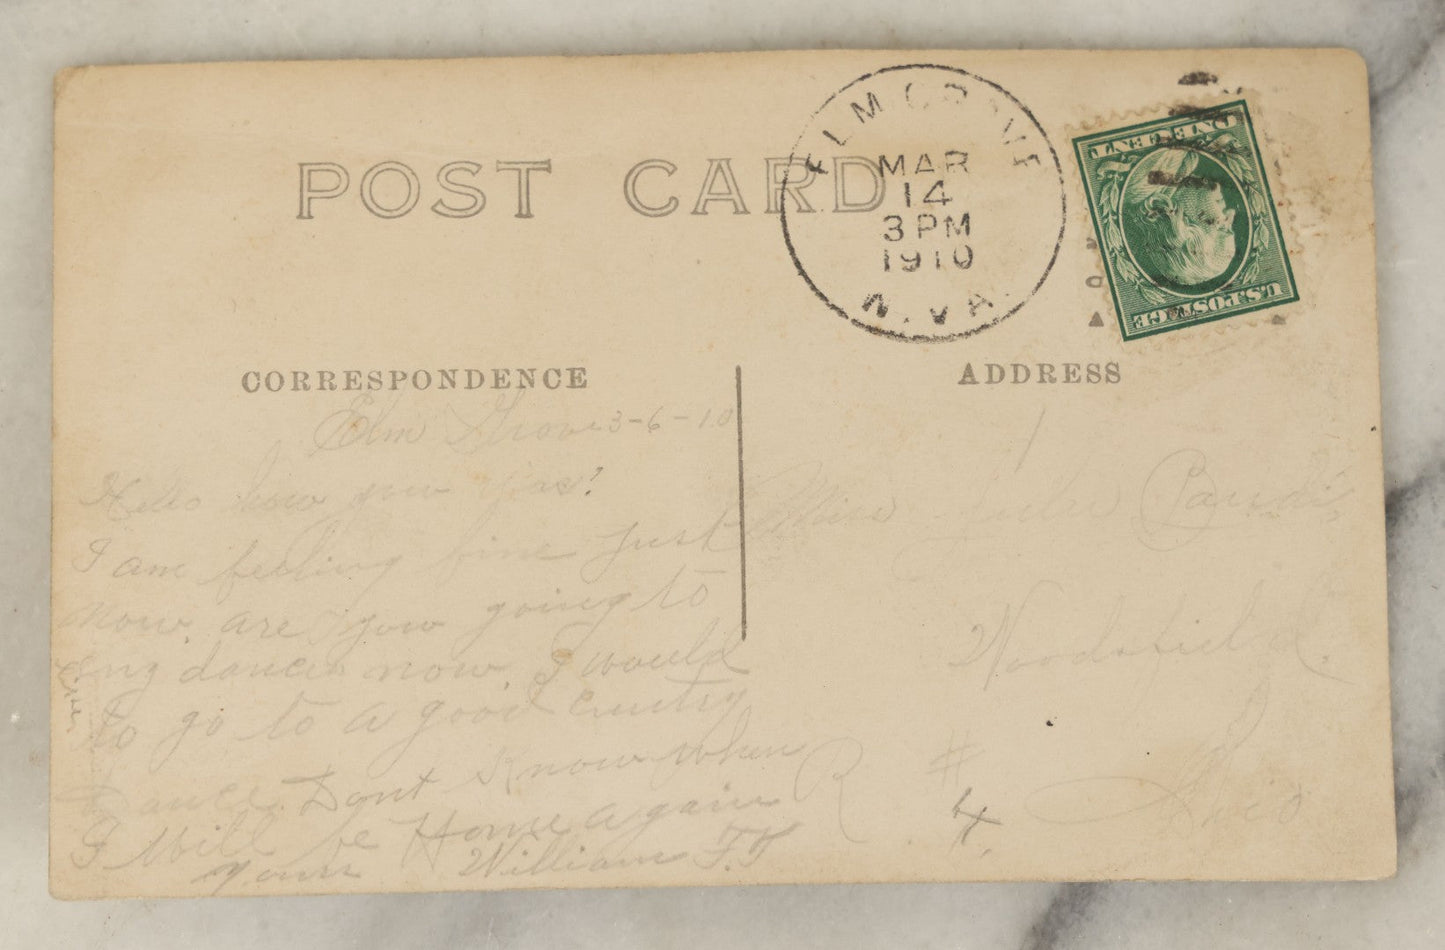 POST CARD
ELM GROVE
MAR
14
3 PM
1910
W. VA.
ONE CENT
U.S. POSTAGE
CORRESPONDENCE
ADDRESS
Elm Grove 3-6-10
Hello how you
I am feeling fine just
now. are you going to
eny dances now. I would
to go to a good cuntry
Dance Dont Know when
I Will be Home again
yours William F.T
Miss
Woodsfield.
R # 4.
Ohio